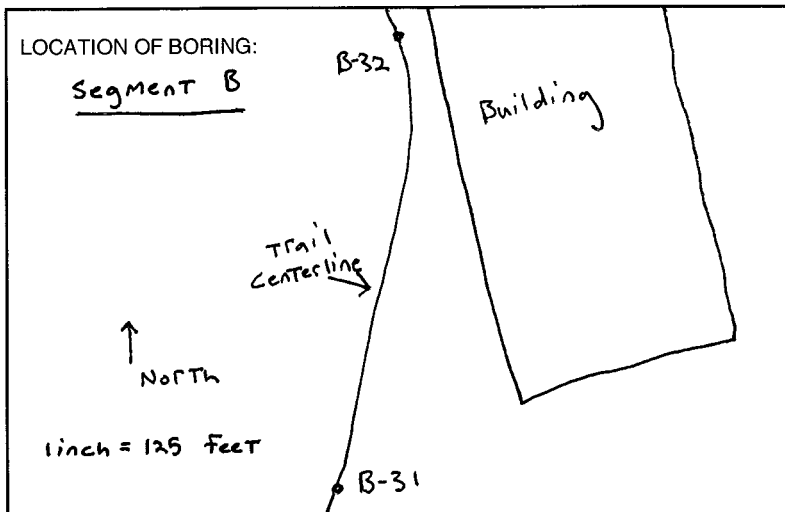 LOCATION OF BORING:
Segment B
B-32
Building
Trail
Centerline
North
1inch = 125 feet
B-31